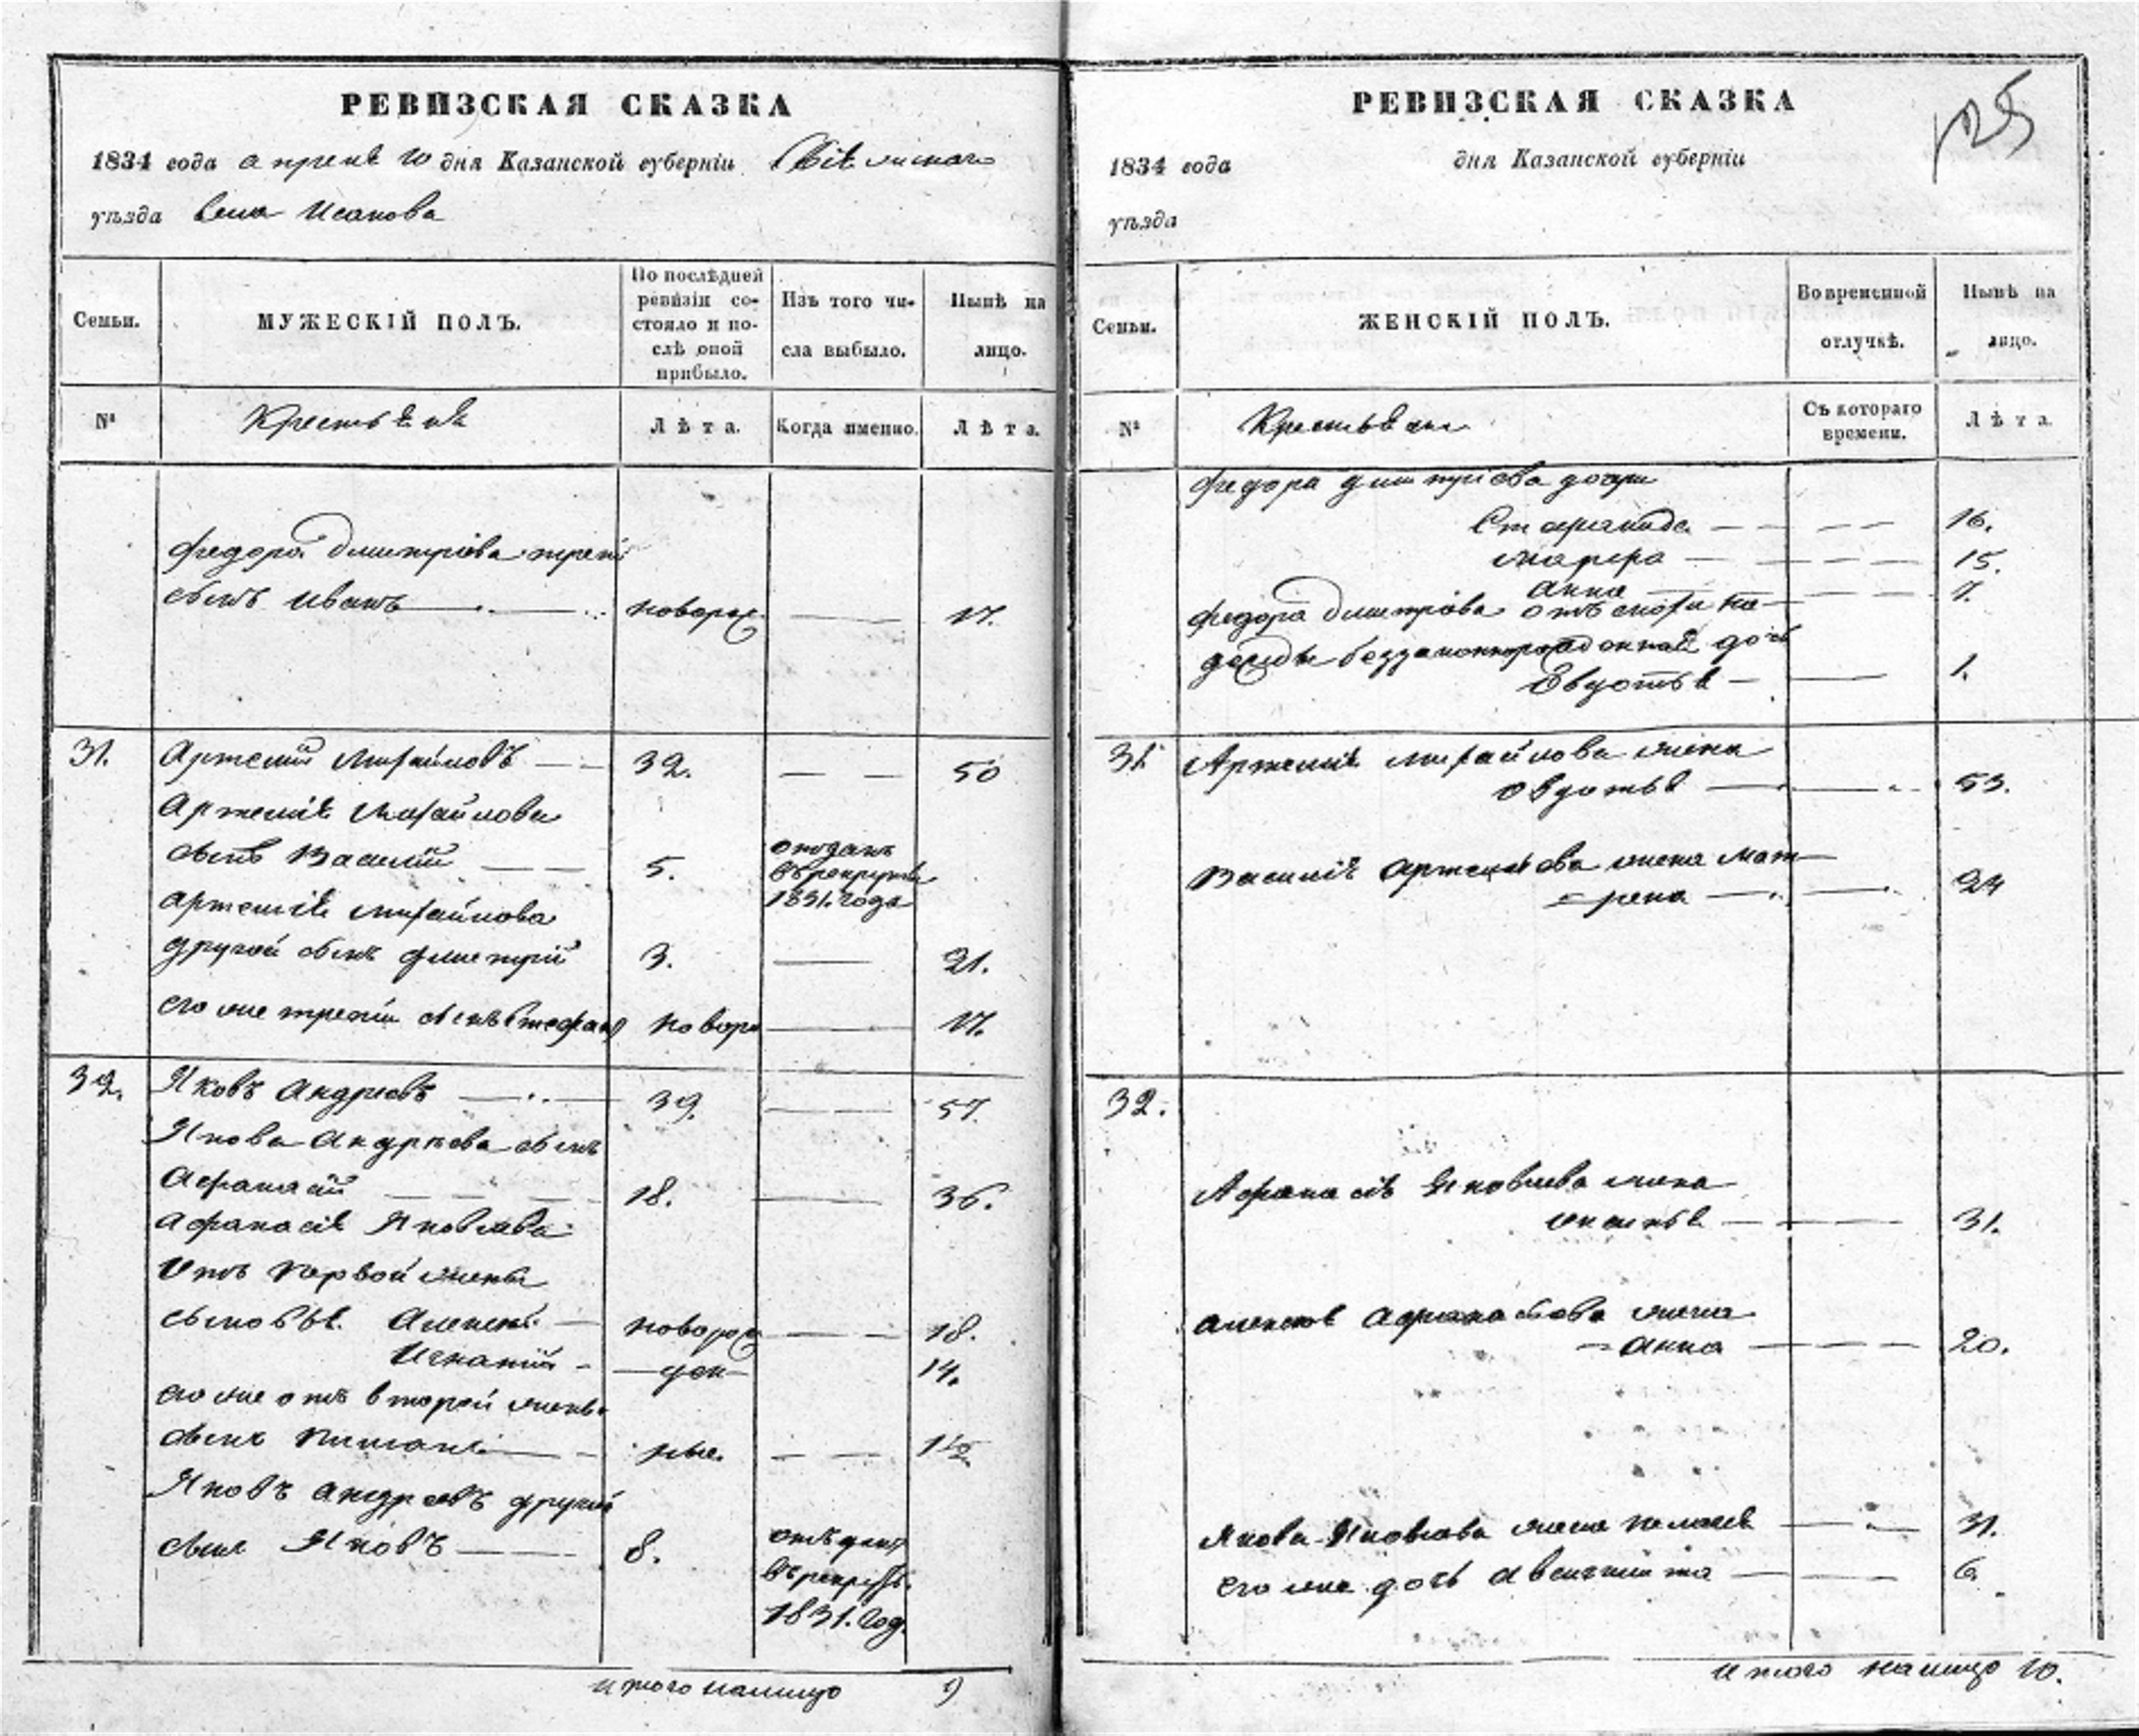 РЕВИЗСКАЯ СКАЗКА
1834 года апреля 10 дня Казанской губерніи
уѣзда села Исакова
Семьи.
МУЖЕСКІЙ ПОЛЪ.
По послѣдней ревизіи состояло и послѣ оной прибыло.
Изъ того числа выбыло.
Нынѣ на лицо.
№
Крестьяне
Лѣта.
Когда именно.
Лѣта.
Федора Дмитріева
сынъ Иванъ новорож 17.
31. Артемій Михайловъ 32. 50
Артемія Михайлова
сынъ Василій 5. отданъ въ рекруты 1831. года
Артемія Михайлова
другой сынъ Дмитрій 3. 21.
его же третій сынъ Стефанъ новоро 17.
32. Яковъ Андреевъ 39. 57.
Якова Андреева сынъ
Афанасій 18. 36.
Афанасія Яковлева
отъ первой жены
сыновья Алексей новорож 18.
Игнатій ден 14.
его же отъ второй жены
сынъ ные.
Яковъ Андреевъ другой
сынъ Яковъ 8. отданъ въ рекруты 1831. год.
итого налицо 9
РЕВИЗСКАЯ СКАЗКА
125
1834 года дня Казанской губерніи
уѣзда
Семьи.
ЖЕНСКІЙ ПОЛЪ.
Во временной отлучкѣ.
Нынѣ на лицо.
№
Крестьяне
Съ котораго времени.
Лѣта.
Федора Дмитріева дочери
16.
Марфа 15.
Анна 7.
Федора Дмитріева отъ
дочь
Евдотья 1.
31 Артемія Михайлова жена
Овдотья 53.
Василія Артемьева жена Мат
=рена 24
32.
Афанасія Яковлева жена
Аксинья 31.
Алексея Афанасьева жена
=Анна 20.
Якова Яковлева жена Пелагея 31.
его же дочь 6.
итого налицо 10.